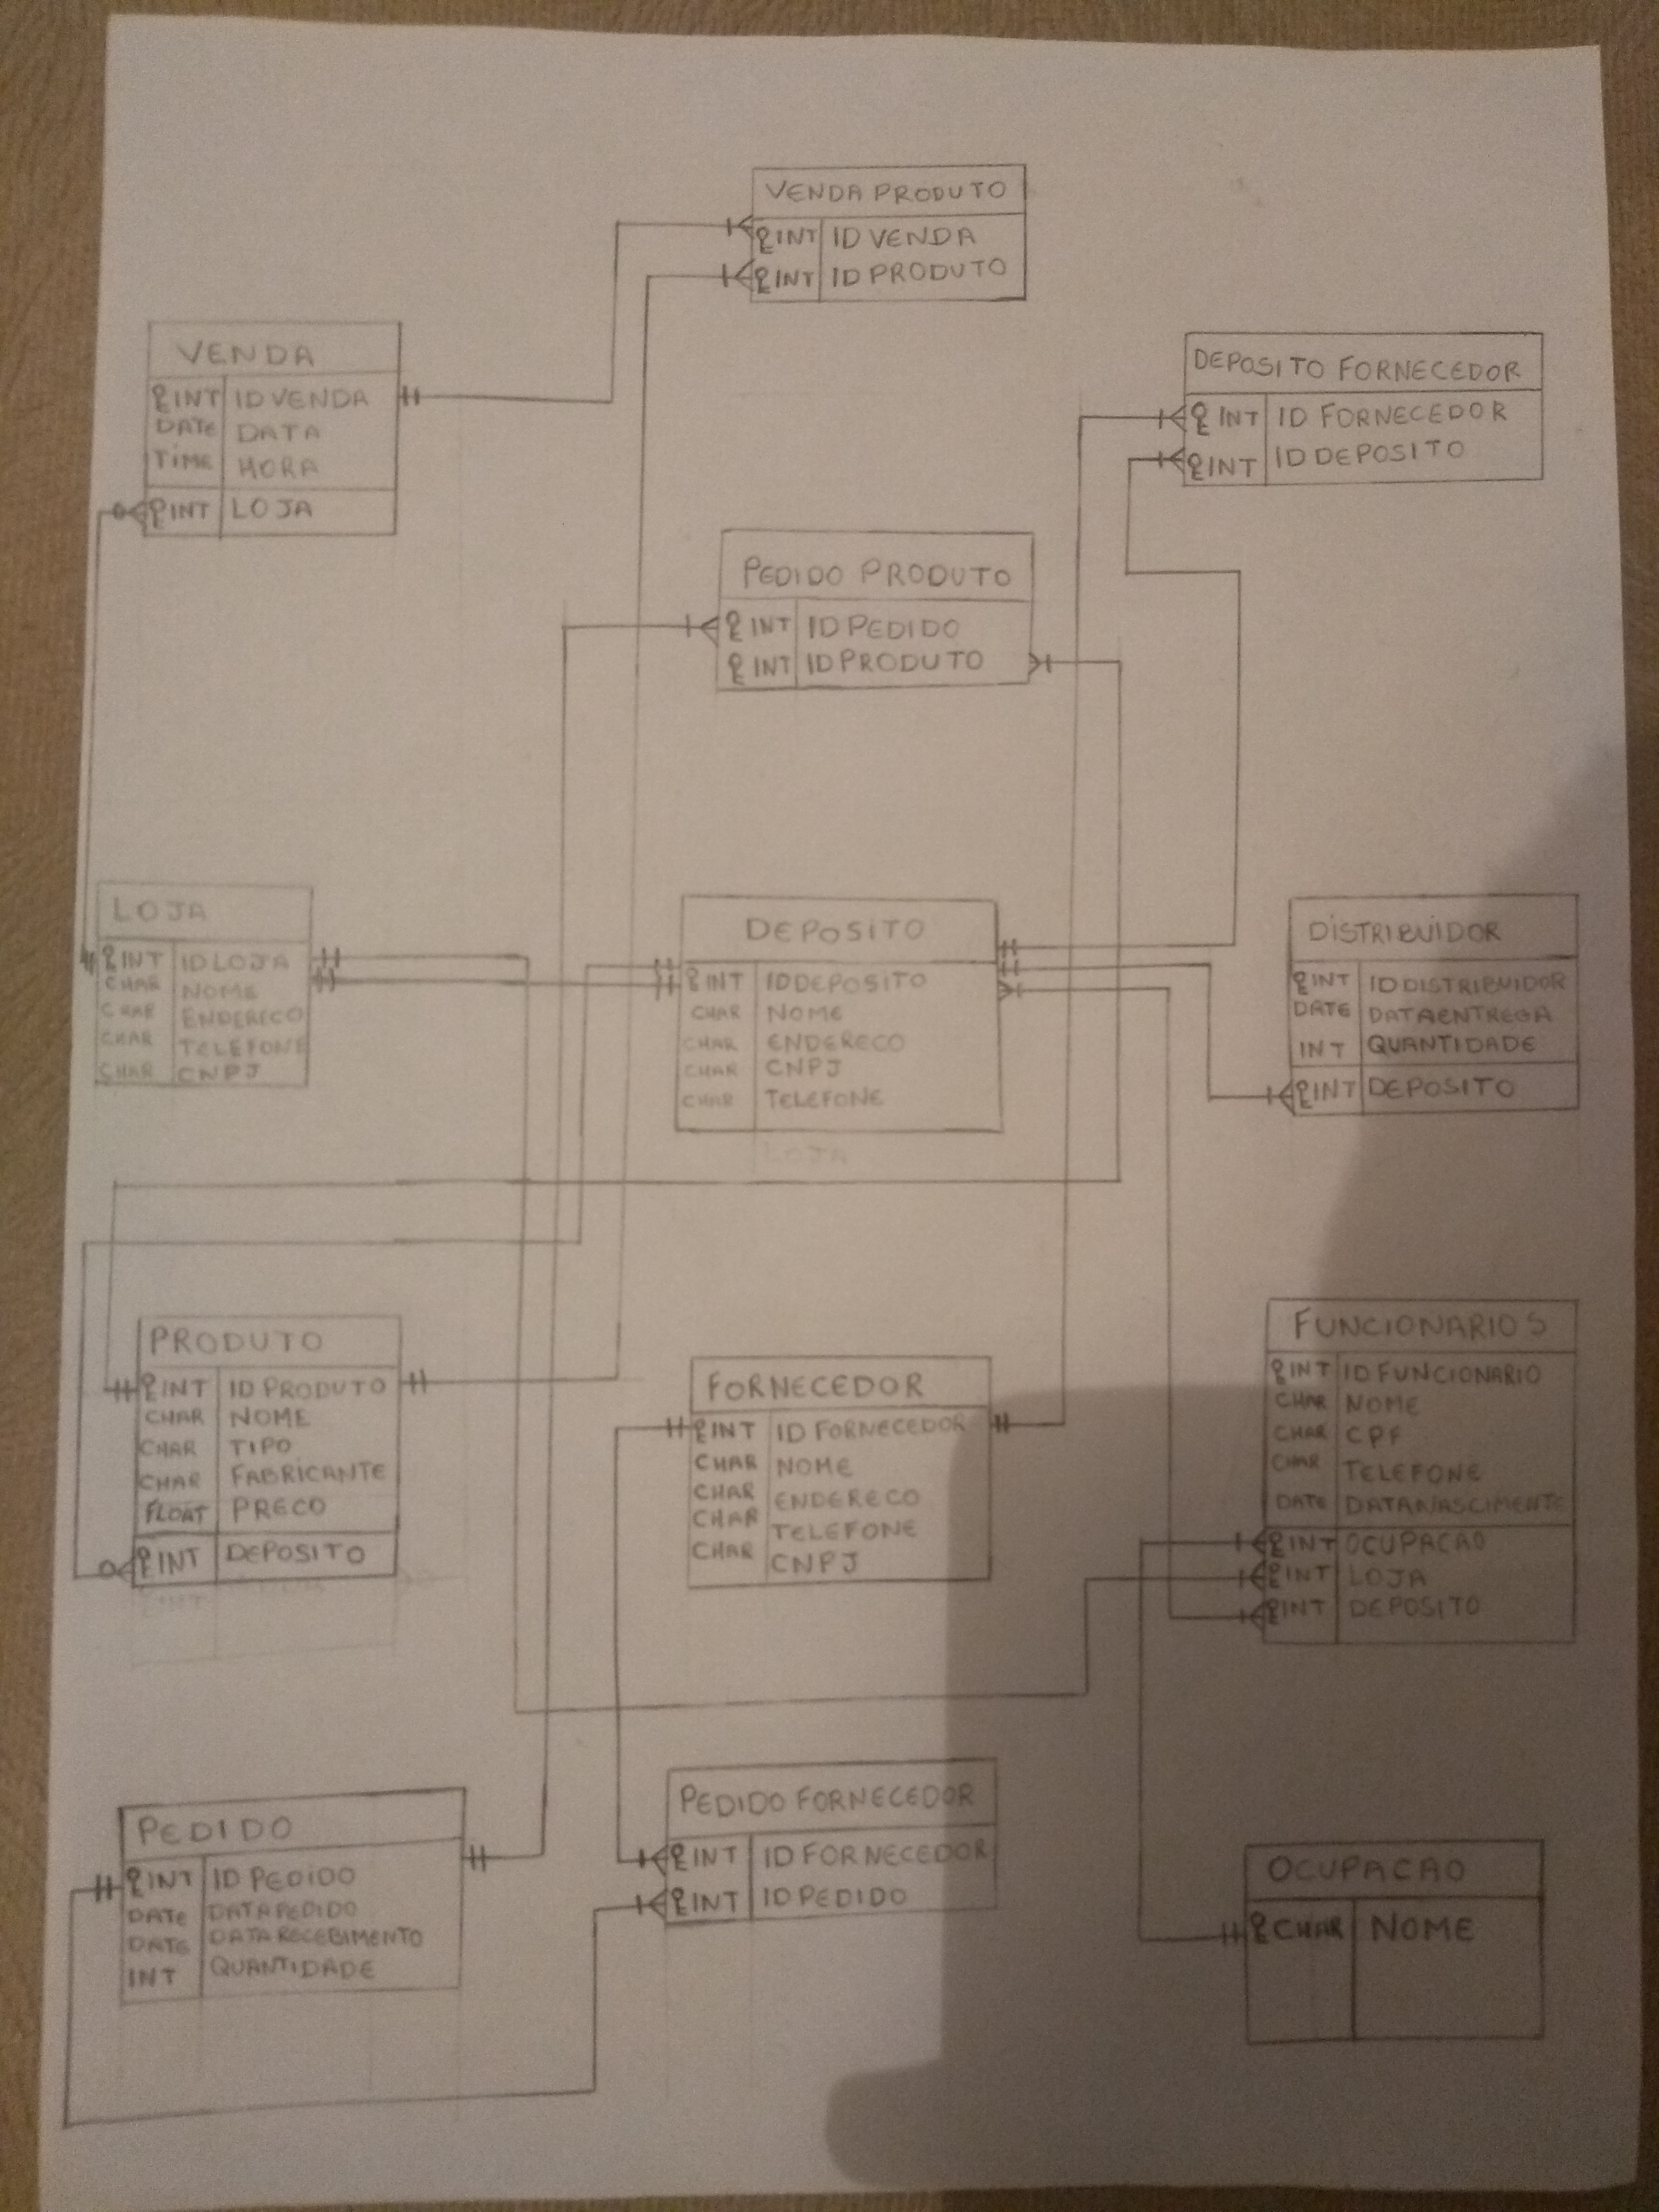 VENDA PRODUTO
INT ID VENDA
INT ID PRODUTO
VENDA
INT ID VENDA
DATE DATA
TIME HORA
INT LOJA
DEPOSITO FORNECEDOR
INT ID FORNECEDOR
INT ID DEPOSITO
PEDIDO PRODUTO
INT ID PEDIDO
INT ID PRODUTO
LOJA
INT ID LOJA
CHAR NOME
CHAR ENDERECO
CHAR TELEFONE
CHAR CNPJ
DEPOSITO
INT ID DEPOSITO
CHAR NOME
CHAR ENDERECO
CHAR CNPJ
CHAR TELEFONE
LOJA
DISTRIBUIDOR
INT ID DISTRIBUIDOR
DATE DATAENTREGA
INT QUANTIDADE
INT DEPOSITO
PRODUTO
INT ID PRODUTO
CHAR NOME
CHAR TIPO
CHAR FABRICANTE
FLOAT PRECO
INT DEPOSITO
FORNECEDOR
INT ID FORNECEDOR
CHAR NOME
CHAR ENDERECO
CHAR TELEFONE
CHAR CNPJ
FUNCIONARIOS
INT ID FUNCIONARIO
CHAR NOME
CHAR CPF
CHAR TELEFONE
DATE DATANASCIMENTE
INT OCUPACAO
INT LOJA
INT DEPOSITO
PEDIDO
INT ID PEDIDO
DATE DATAPEDIDO
DATE DATARECEBIMENTO
INT QUANTIDADE
PEDIDO FORNECEDOR
INT ID FORNECEDOR
INT ID PEDIDO
OCUPACAO
CHAR NOME